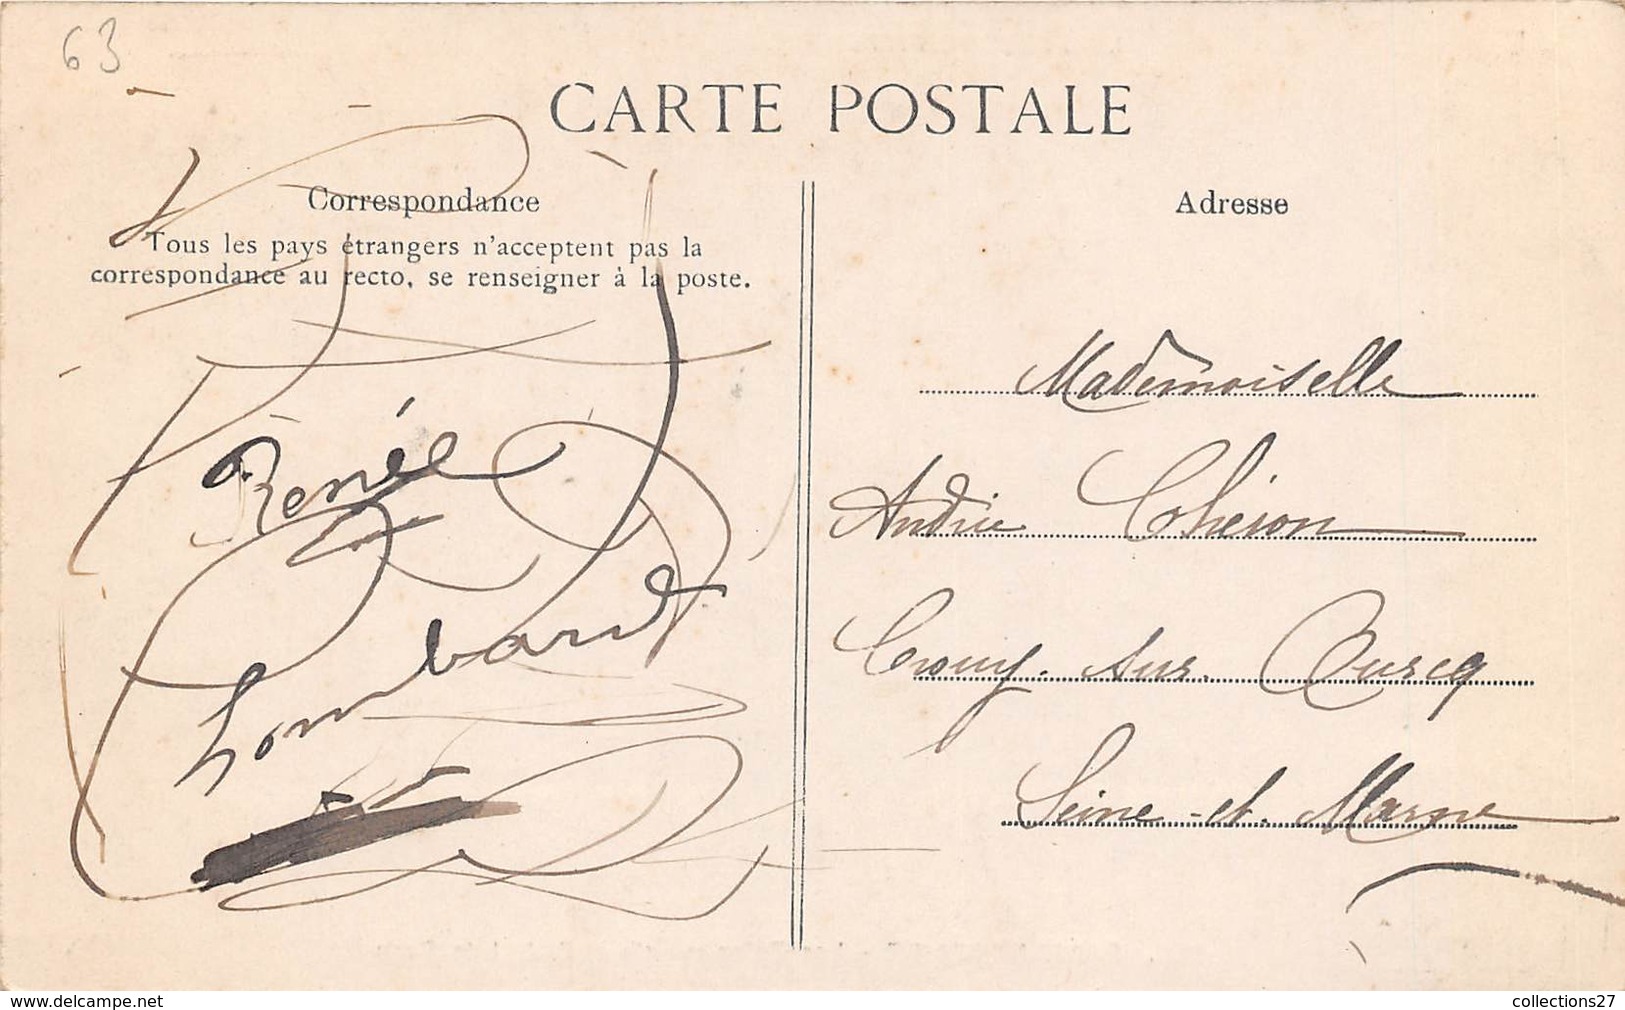 63
CARTE POSTALE
Correspondance
Tous les pays étrangers n'acceptent pas la
correspondance au recto, se renseigner à la poste.
Renée
Lombard
Adresse
Mademoiselle
Andrée
Crouy-sur-Ourcq
Seine-et-Marne
www.delcampe.net
collections27